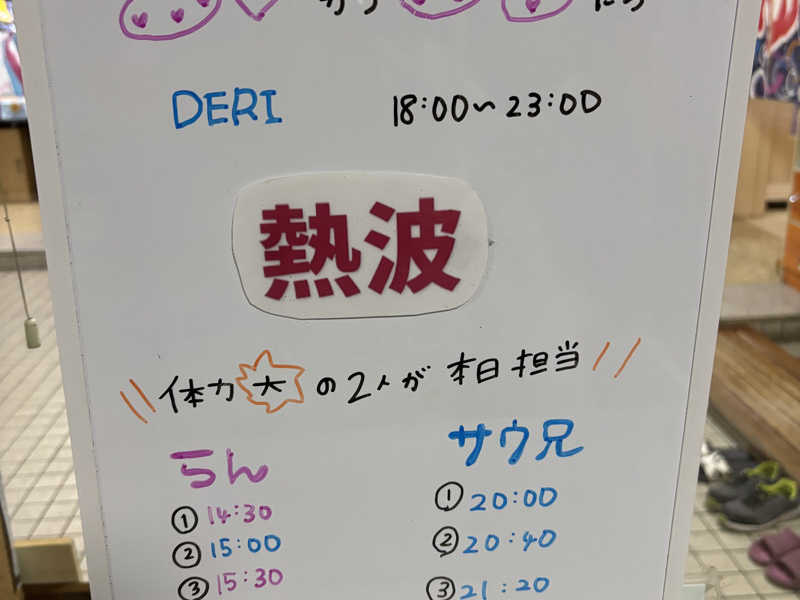 から
DERI 18:00〜23:00
熱波
\\体力大の2人が 本日担当//
らん サウ兄
① 14:30 ① 20:00
② 15:00 ② 20:40
③ 15:30 ③ 21:20